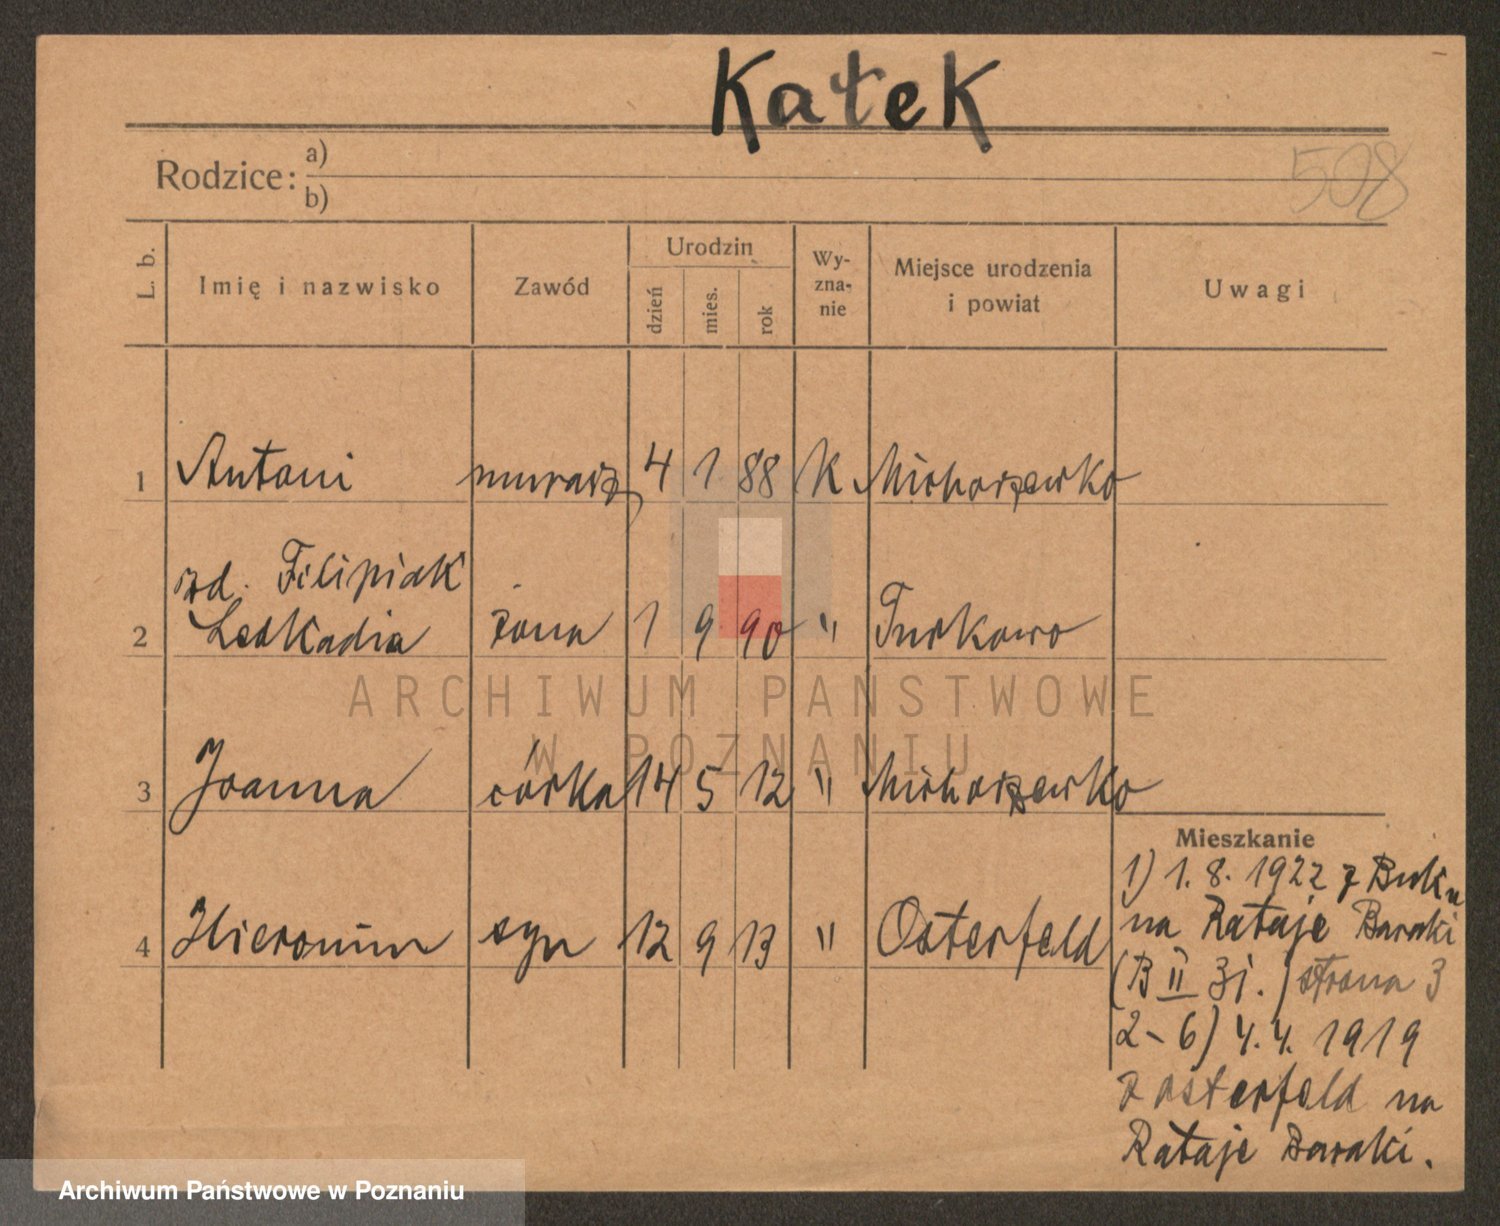 Kałek
508
Rodzice: a)
b)
L. b. Imię i nazwisko Zawód Urodzin dzień mies. rok Wy-zna-nie Miejsce urodzenia i powiat Uwagi
1 Antoni murarz 4 1 88 K Michorzewko
zd. Filipiak
2 Leokadia żona 1 9 90 " Turkowo
ARCHIWUM PAŃSTWOWE
W POZNANIU
3 Joanna córka 14 5 12 " Michorzewko
Mieszkanie
4 Hieronim syn 12 9 13 " Osterfeld
1) 1. 8. 1922 z Buku
na Rataje Baraki
(B II 3j.) strona 3
2-6) 4. 4. 1919
z Osterfeld na
Rataje Baraki.
Archiwum Państwowe w Poznaniu